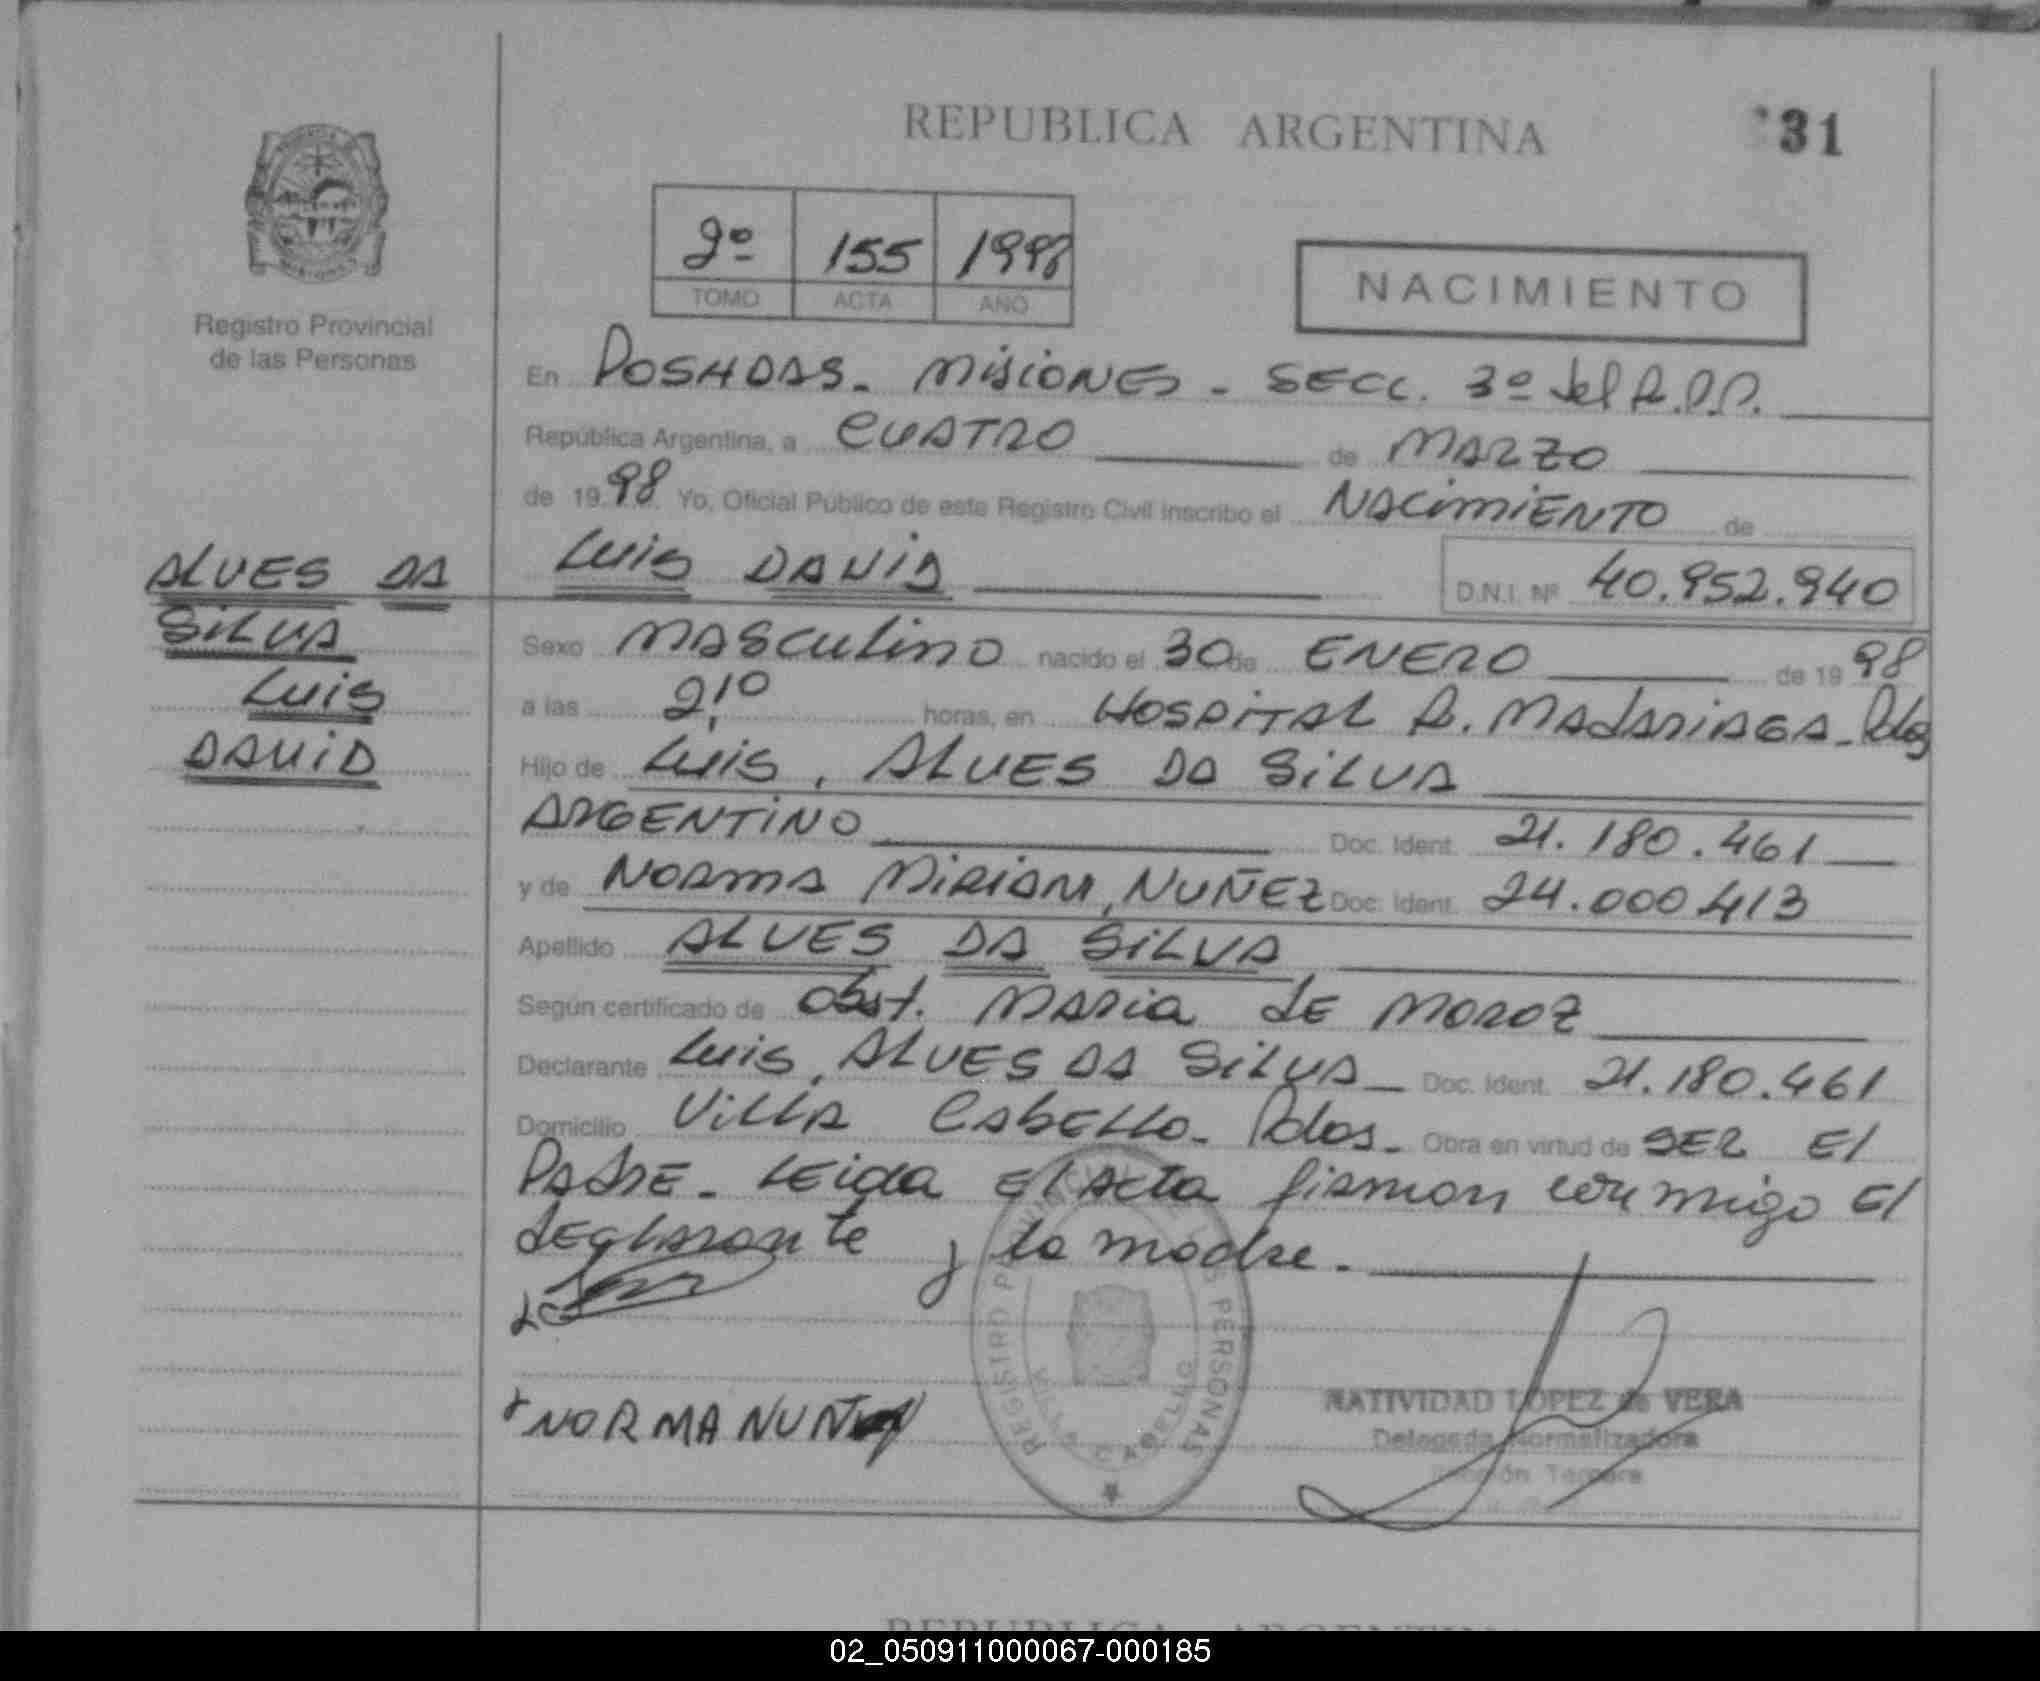 REPUBLICA ARGENTINA
31
2º 155 1998
TOMO ACTA AÑO
NACIMIENTO
Registro Provincial
de las Personas
En POSADAS - MISIONES - SECC. 3º del R.P.P.
República Argentina, a CUATRO de MARZO
de 1998 Yo, Oficial Público de este Registro Civil inscribo el NACIMIENTO de
ALVES DA
SILVA
LUIS
DAVID
LUIS DAVID D.N.I. Nº 40.952.940
Sexo MASCULINO nacido el 30 de ENERO de 1998
a las 2,10 horas, en HOSPITAL R. MADARIAGA - Pdas
Hijo de LUIS, ALVES DA SILVA
ARGENTINO Doc. Ident. 21.180.461
y de NORMA MIRIAM, NUÑEZ Doc. Ident. 24.000.413
Apellido ALVES DA SILVA
Según certificado de Obst. MARIA de MOROZ
Declarante LUIS, ALVES DA SILVA - Doc. Ident. 21.180.461
Domicilio VILLA CABELLO - Pdas. - Obra en virtud de SER El
PADRE - LEida El Acta firman conmigo El
declarante y la madre.
NORMA NUÑEZ
REGISTRO PROVINCIAL DE LAS PERSONAS
VILLA CABELLO
NATIVIDAD LOPEZ de VERA
Delegada Normalizadora
Sección Tercera
REPUBLICA ARGENTINA
02_050911000067-000185